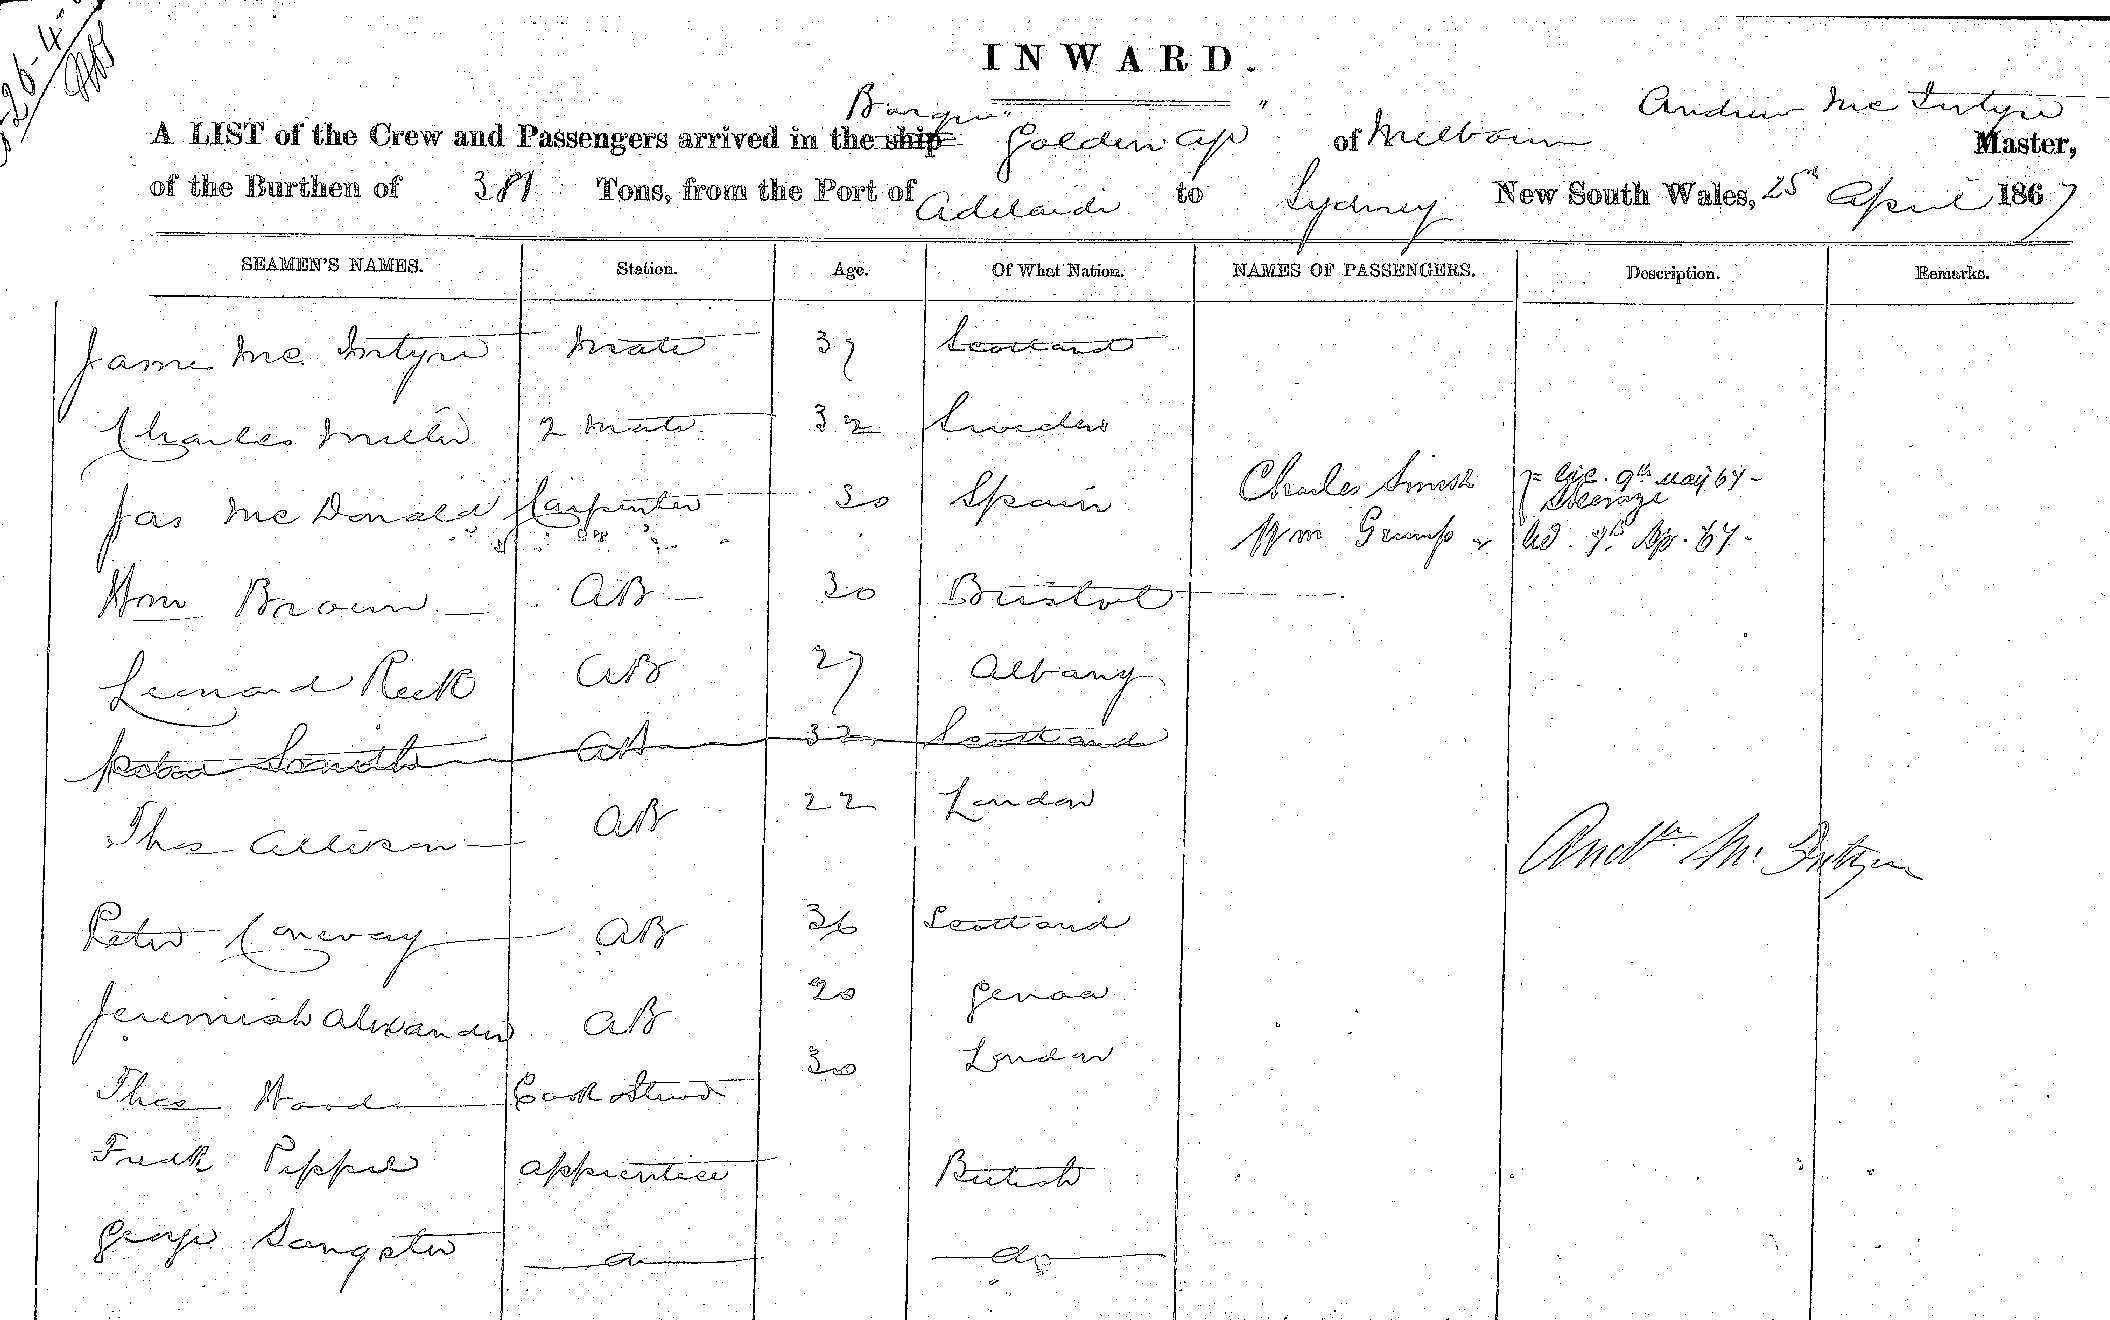 26-4-
INWARD.
Barque "Golden Age" Andrew Mc Intyre
A LIST of the Crew and Passengers arrived in the ship of Melbourn Master,
of the Burthen of 381 Tons, from the Port of Adelaide to Sydney New South Wales, 25th April 1867
SEAMEN'S NAMES. Station. Age. Of What Nation. NAMES OF PASSENGERS. Description. Remarks.
James Mc Intyre Mate 37 Scotland
Charles Miller 2 Mate 32 Sweden
Jas Mc Donald Carpenter 30 Spain Charles Smith 9th May 67 -
Steerage
Wm Grump 9th Ap. 67 -
Wm Brown AB 30 Bristol
Leonard AB 27 Albany
Peter Smith AB 32 Scotland
Thos Allison AB 22 London
Andw Mc Intyre
Peter Conway AB 36 Scotland
Jeremiah Alexander AB 20 Genoa
Thos Wood Cook & Stwd 30 London
Fredk Peppel Apprentice British
George Sangster do do